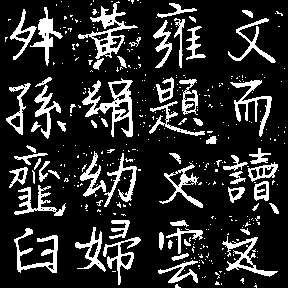 文而讀之
雍題文雲
黃絹幼婦
外孫齏臼